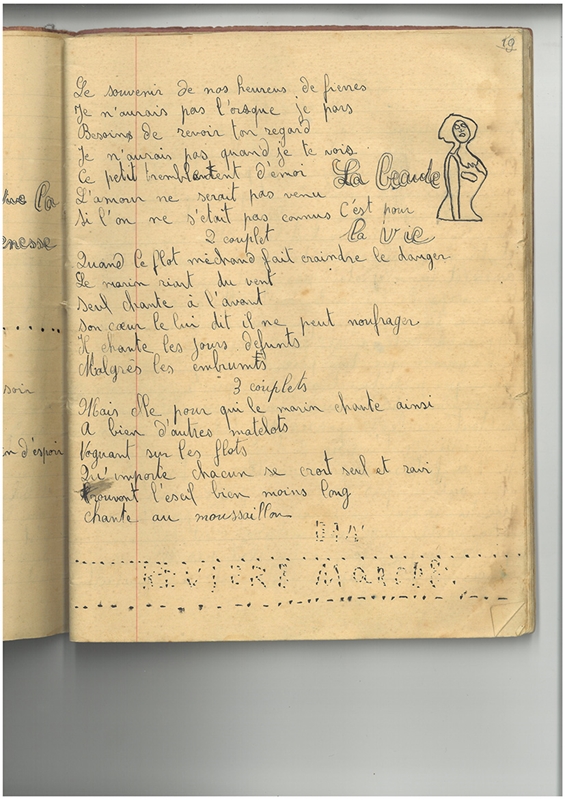 19
Le souvenir de nos heureus de fienes
Je n'aurais pas l'orsque je pars
Besoins de revoir ton regard
Je n'aurais pas quand je te vois
Ce petit tremblantent d'émoi
La beaute
L'amour ne serait pas venu
Si l'on ne s'etait pas connus
C'est pour
la vie
2 couplet
Quand le flot méchand fait craindre le danger
Le marin riant du vent
Seul chante à l'avant
Son cœur le lui dit il ne peut noufrager
Il chante les jours défunts
Malgrès les embrumts
3 couplets
Mais elle pour qui le marin chante ainsi
A bien d'autres matelots
Voguant sur les flots
Qu'importe chacun se croit seul et ravi
trouvont l'escal bien moins long
chante au moussaillon
la
enesse
soir
en d'espoir